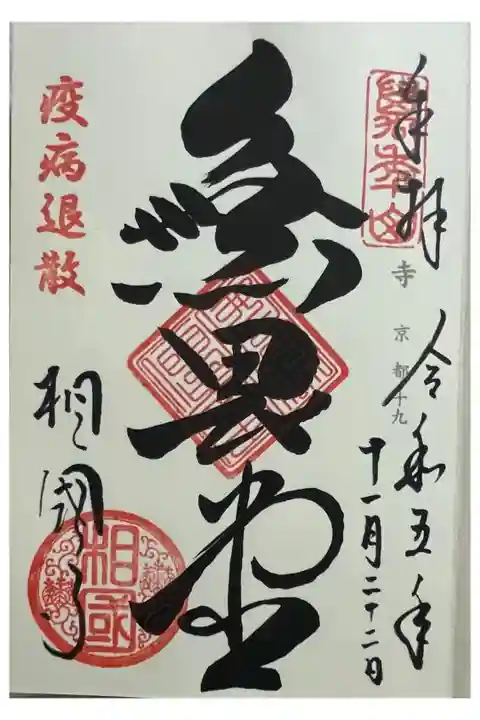 奉拝
萬年山
寺 京都十九
令和五年
十一月二十二日
無畏堂
疫病退散
相國寺
相國